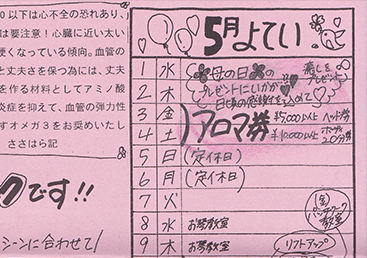 0 以下は心不全の恐れあり、
は要注意！心臓に近い太い
硬くなっている傾向。血管の
と丈夫さを保つ為には、丈夫
を作る材料としてアミノ酸
炎症を抑えて、血管の弾力性
すオメガ3をお奨めいたし
ささはら記
クです!!
シーンに合わせて
5月よてい
1 水 母の日の 癒しをプレゼント
2 木 プレゼントにいかが
日頃の感謝を込めて
3 金 アロマ券 ¥5,000以上 ヘッド券
4 土 ¥10,000以上 ボディ20分券
5 日 (定休日)
6 月 (定休日)
7 火
8 水 お琴教室
9 木 お琴教室
(金)
パッチワーク
教室
リフトアップ